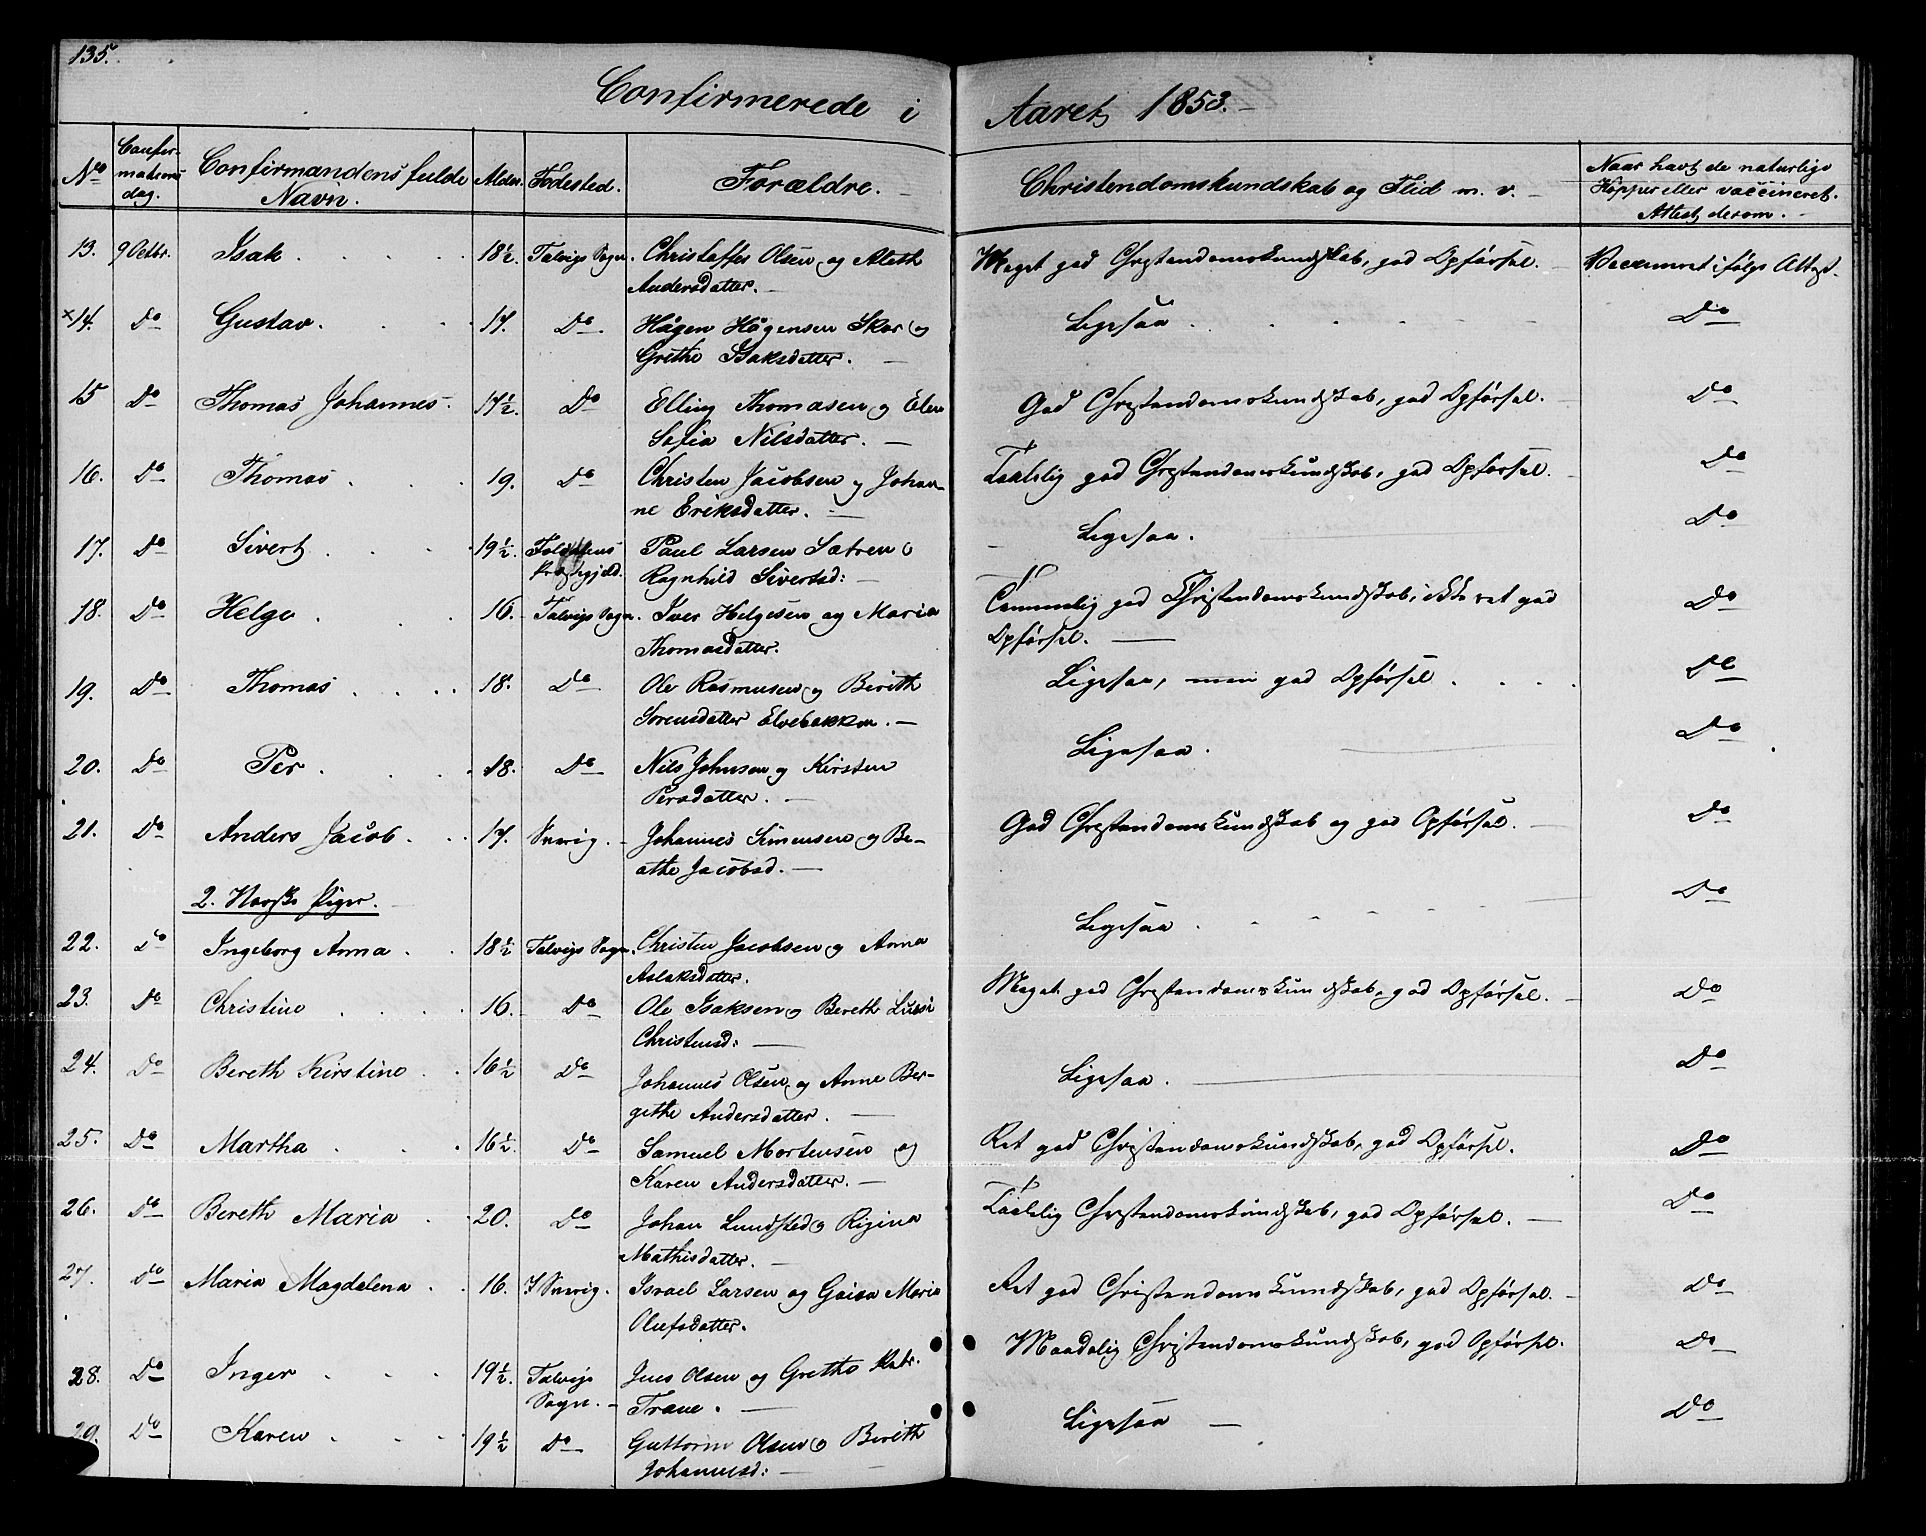 135.
Confirmerede i Aaret 1853.
No Confirmations dag. Confirmandens fulde Navn. Alder. Fødested. Forældre. Christendomskundskab og Flid m. v. Naar havt de naturlige Kopper eller vaccineret. Attest derom.
13. 9 Octbr. Isak 18½. Talvigs Sogn. Christoffer Olsen og Aleth Meget god Christendomskundskab, god Opførsel. Vaccineret ifølge Attest.
Andersdatter.
×14. Do Gustav. 17. Do Hågen Hågensen Skar og Ligesaa Do
Grethe Isaksdatter.
15 Do Thomas Johannes. 17½. Do Elling Thomasen og Elen God Christendomskundskab, god Opførsel. Do
Sofia Nilsdatter.
16. Do Thomas 19. Do Christen Jacobsen og Johan- Taalelig god Christendomskundskab, god Opførsel. Do
ne Eriksdatter.
17. Do Sivert 19½. Paul Larsen Sætren o Ligesaa. Do
Præstegjeld. Ragnhild Sivertsd:
18. Do Helge 16. Talvigs Sogn. Iver Helgesen og Maria Temmelig god Christendomskundskab, ikke ret god Do
Thomasdatter. Opførsel.
19. Do Thomas 18. Do Ole Rasmusen og Berith Ligesaa, men god Opførsel. Do
Sorensdatter Elvebakken.
20. Do Per 18. Do Nils Johnsen og Kirsten Ligesaa. Do
Persdatter.
21. Do Anders Jacob. 17. Sverig. Johannes Simensen og Be- God Christendomskundskab og god Opførsel. Do
athe Jacobsd.
2. Norske Piger.
22. Do Ingeborg Anna 18½ Talvigs Sogn. Christen Jacobsen og Anna Ligesaa. Do
Aslaksdatter.
23. Do Christine 16. Do Ole Isaksen og Bereth Lucie Meget god Christendomskundskab, god Opførsel. Do
Christensd:
24. Do Bereth Kirstine 16½ Do Johannes Olsen og Anne Ber- Ligesaa. Do
githe Andersdatter.
25. Do Martha 16½. Do Samuel Mortensen og Ret god Christendomskundskab, god Opførsel. Do
Karen Andersdatter.
26. Do Bereth Maria 20. Do Johan Lundsted og Regina Taalelig Christendomskundskab, god Opførsel. Do
Mathisdatter.
27. Do Maria Magdalena 16. I Sverig. Israel Larsen og Maria Ret god Christendomskundskab, god Opførsel. Do
Olufsdatter.
28. Do Inger 19½. Talvigs Jens Olsen og Grethe Maadelig Christendomskundskab, god Opførsel. Do
Sogn. Trane.
29. Do Karen 19½ Do Guttorm Olsen og Berith Ligesaa Do
Johannesd: